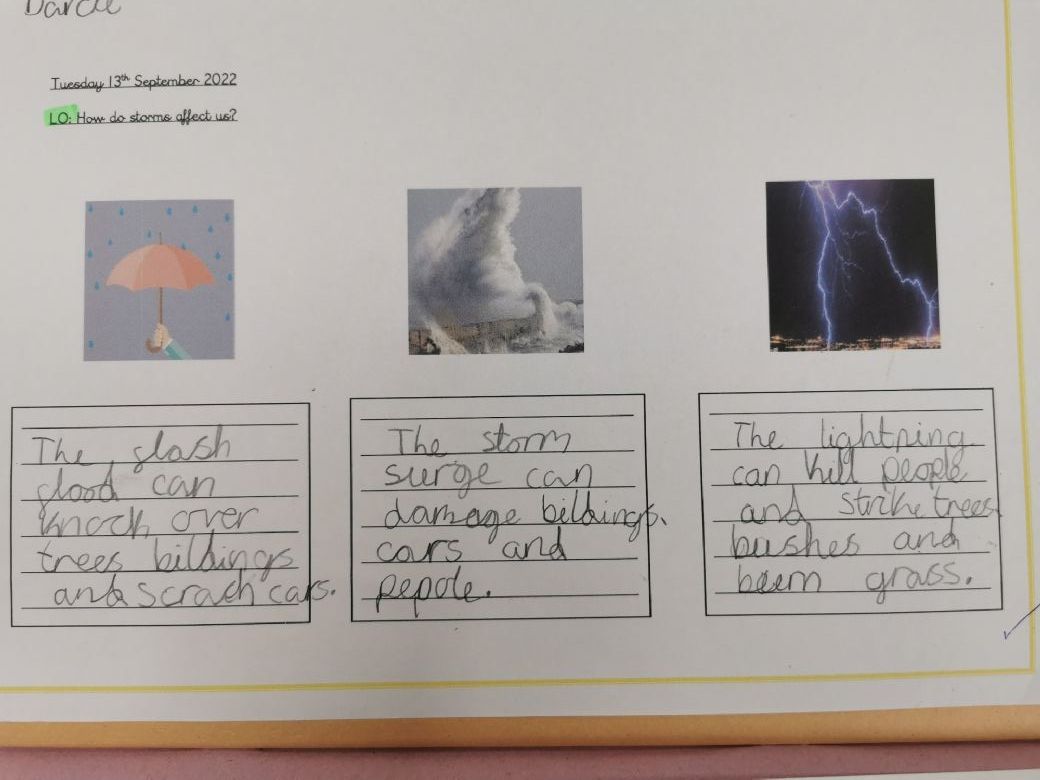 Darcie
Tuesday 13th September 2022
LO: How do storms affect us?
The flash
flood can
knock over
trees bildings
and scrach cars.
The storm
surge can
damage bildings.
cars and
pepole.
The lightning
can kill people
and strike trees
bushes and
bern grass.